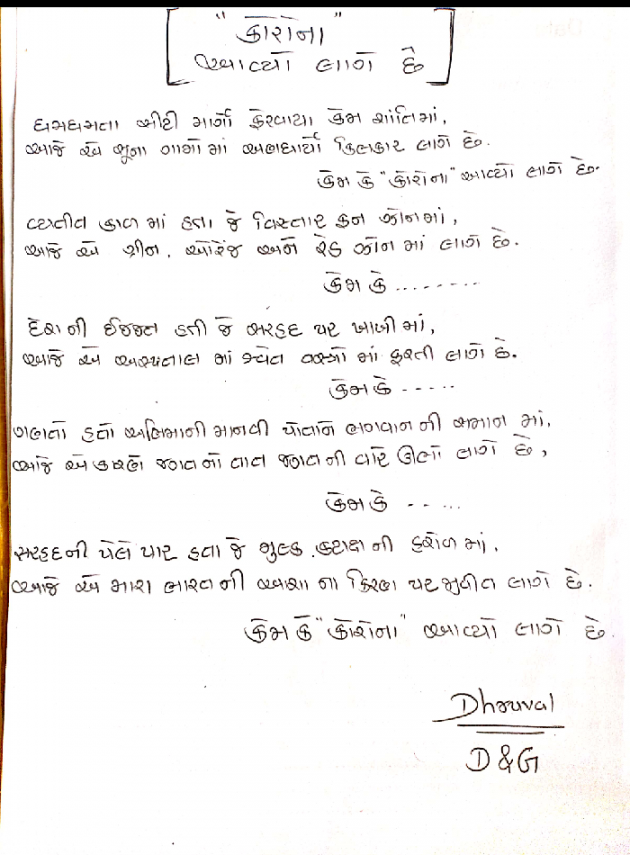 "કોરોના"
આવ્યો લાગે છે
ધમધમતા સીટી માર્ગો ફેરવાયા કેમ શાંતિમાં,
આજે એ સૂના ગામોમાં અણધાર્યો કિલકાર લાગે છે.
કેમ કે "કોરોના" આવ્યો લાગે છે.
વ્યતીત કાળ માં હતા જે વિસ્તાર ફન ઝોનમાં,
આજે એ ગ્રીન, ઓરેંજ અને રેડ ઝોન માં લાગે છે.
કેમ કે.........
દેશ ની ઈજ્જત હતી જે સરહદ પર ખાખી માં,
આજે એ અસ્પતાલ માં શ્વેત વસ્ત્રો માં ફરતી લાગે છે.
કેમ કે -----
ગણતો હતો અભિમાની માનવી પોતાને ભગવાન ની સમાન માં,
આજે એ જગત નો તાત જગત ની વારે ઊભો લાગે છે,
કેમ કે -- ...
સરહદ ની પેલે પાર હતા જે મુલ્ક કટાક્ષ ની હરોળ માં,
આજે એ મારા ભારત ની આશા ના કિરણ પર જીવીત લાગે છે.
કેમ કે "કોરોના" આવ્યો લાગે છે.
Dhruval
D&G